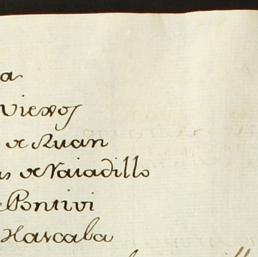 a
Viexos
de Ruan
as de Vaiadillo
de Pontivi
Harcaba